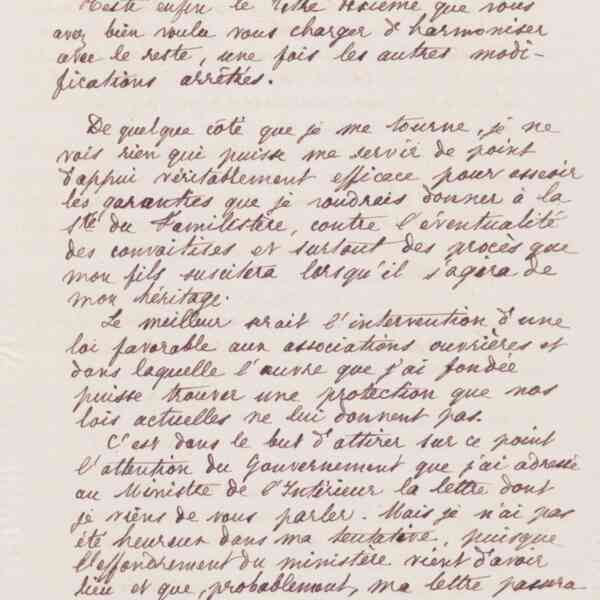 Reste enfin le titre deuxième que vous
avez bien voulu vous charger d'harmoniser
avec le reste, une fois les autres modi-
fications arrêtées.
De quelque côté que je me tourne, je ne
vois rien qui puisse me servir de point
d'appui véritablement efficace pour asseoir
les garanties que je voudrais donner à la
Sté du Familistère, contre l'éventualité
des convoitises et surtout des procès que
mon fils suscitera lorsqu'il s'agira de
mon héritage.
Le meilleur serait l'intervention d'une
loi favorable aux associations ouvrières et
dans laquelle l'œuvre que j'ai fondée
puisse trouver une protection que nos
lois actuelles ne lui donnent pas.
C'est dans le but d'attirer sur ce point
l'attention du Gouvernement que j'ai adressé
au Ministre de l'Intérieur la lettre dont
je viens de vous parler. Mais je n'ai pas
été heureux dans ma tentative, puisque
l'effondrement du ministère vient d'avoir
lieu et que, probablement, ma lettre passera